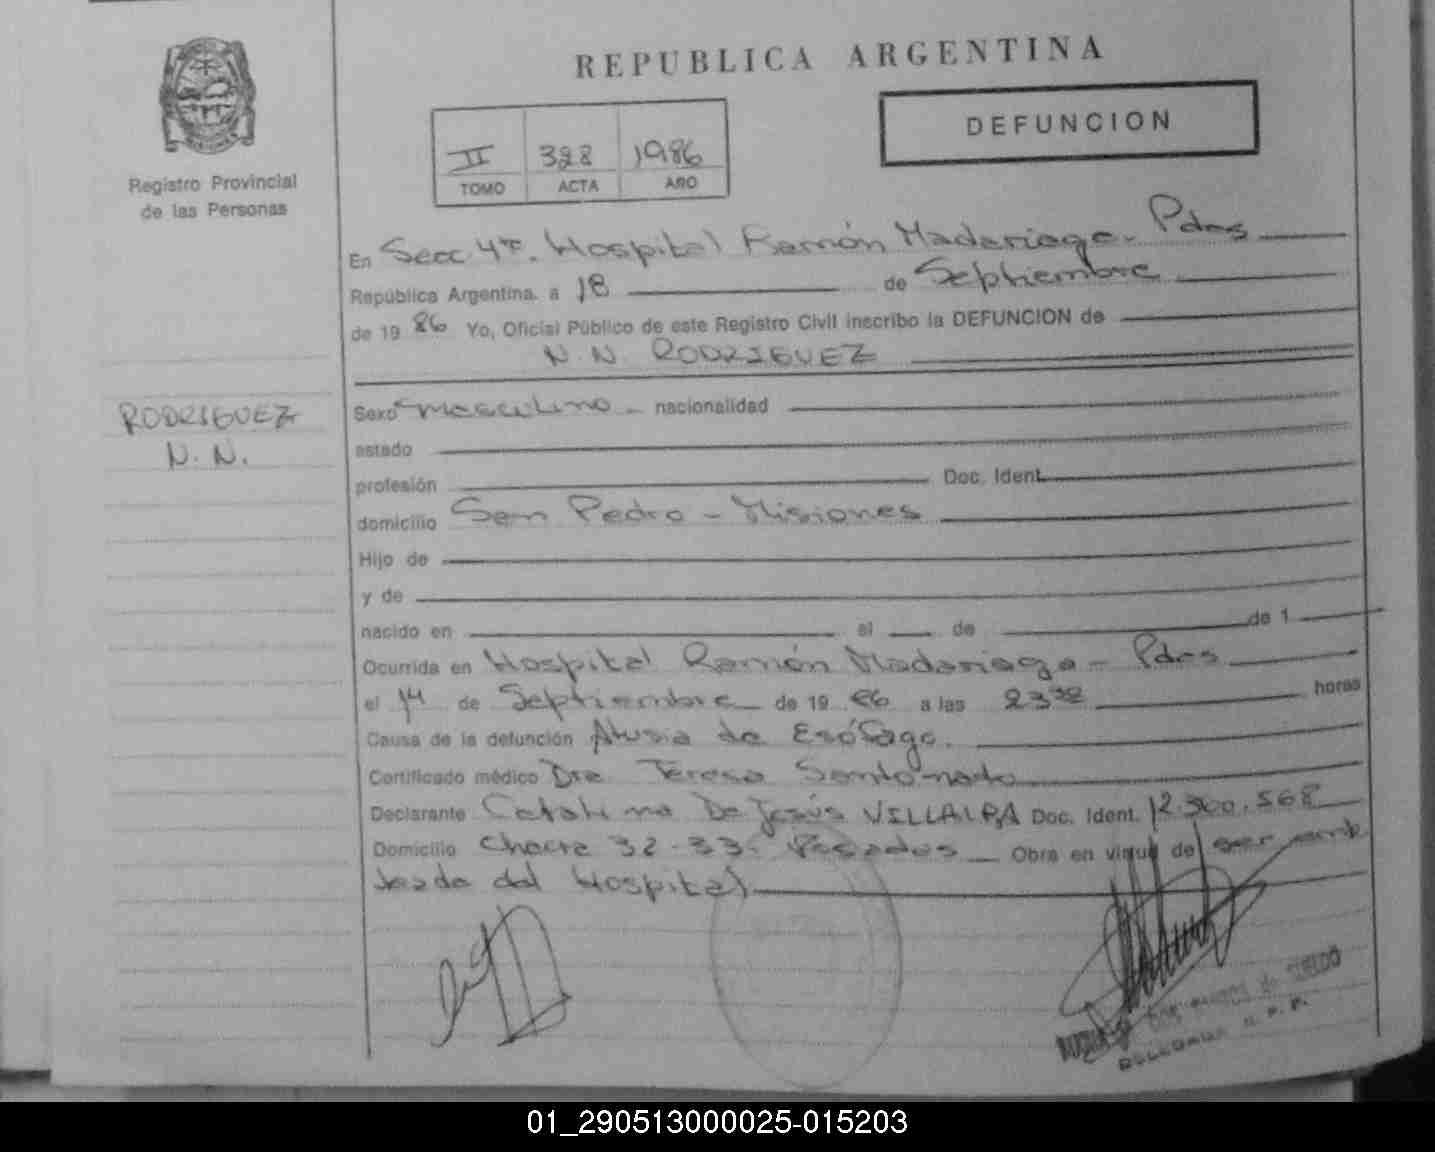 REPUBLICA ARGENTINA
DEFUNCION
II 328 1986
TOMO ACTA AÑO
Registro Provincial
de las Personas
En Secc. 4ta. Hospital Ramón Madariaga. Pdas
República Argentina, a 18 de Septiembre
de 19 86 Yo, Oficial Público de este Registro Civil inscribo la DEFUNCION de
N. N. RODRIGUEZ
RODRIGUEZ
N. N.
Sexo Masculino nacionalidad
estado
profesión Doc. Ident.
domicilio San Pedro - Misiones
Hijo de
y de
nacido en el de de 1
Ocurrida en Hospital Ramón Madariaga - Pdas
el 14 de Septiembre de 19 86 a las 23 horas
Causa de la defunción de Esófago.
Certificado médico Dra. Teresa
Declarante Catalina De Jesús VILLALBA Doc. Ident. 12.300.568
Domicilio Chacra 32-33- Posadas Obra en virtud de ser emp
leada del Hospital
01_290513000025-015203